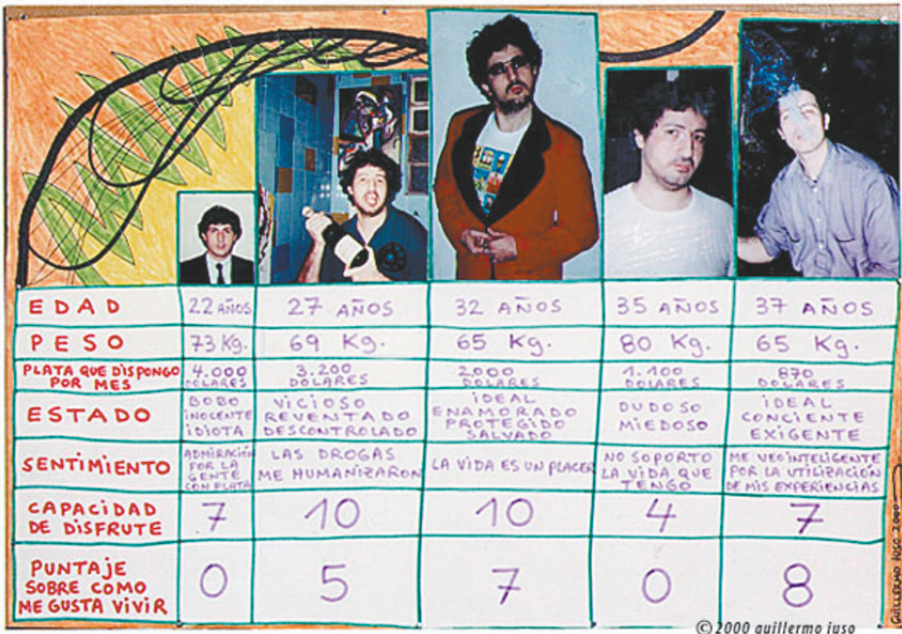 EDAD
22 AÑOS
27 AÑOS
32 AÑOS
35 AÑOS
37 AÑOS
PESO
73 Kg.
69 Kg.
65 Kg.
80 Kg.
65 Kg.
PLATA QUE DISPONGO
POR MES
4.000
DOLARES
3.200
DOLARES
2000
DOLARES
1.100
DOLARES
870
DOLARES
ESTADO
BOBO
INOCENTE
IDIOTA
VICIOSO
REVENTADO
DESCONTROLADO
IDEAL
ENAMORADO
PROTEGIDO
SALVADO
DUDOSO
MIEDOSO
IDEAL
CONCIENTE
EXIGENTE
SENTIMIENTO
ADMIRACIÓN
POR LA
GENTE
CON PLATA
LAS DROGAS
ME HUMANIZARON
LA VIDA ES UN PLACER
NO SOPORTO
LA VIDA QUE
TENGO
ME VEO INTELIGENTE
POR LA UTILIZACIÓN
DE MIS EXPERIENCIAS
CAPACIDAD
DE DISFRUTE
7
10
10
4
7
PUNTAJE
SOBRE COMO
ME GUSTA VIVIR
0
5
7
0
8
GUILLERMO IUSO 2000
©2000 guillermo iuso